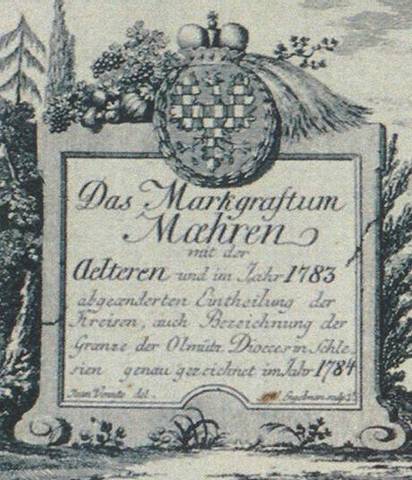 Das Markgraftum
Mæhren
mit der
Aelteren und im Jahr 1783
abgeænderten Eintheilung der
Kreisen, auch Bezeichnung der
Grænze der Olmütz. Dioeces in Schle
sien genau gezeichnet im Jahr 1784
del.